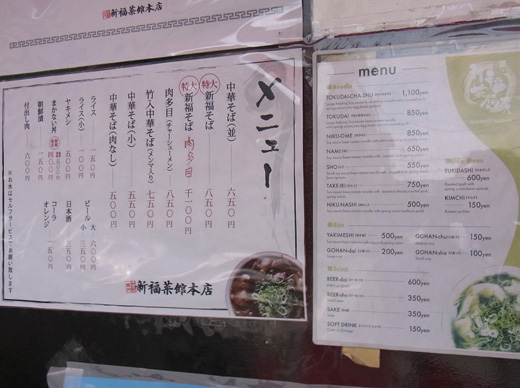 新福菜館本店
メニュー
中華そば(並) 六五〇円
特大 新福そば 八五〇円
特大 新福そば 肉多目 千一〇〇円
肉多目(チャーシューメン) 八五〇円
竹入中華そば(メンマ入り) 七五〇円
中華そば(小) 五五〇円
中華そば(肉なし) 五五〇円
ライス 一五〇円
ライス(小) 一〇〇円
ヤキメシ 五〇〇円
まかない丼
朝鮮漬 一五〇円
付出し肉 六〇〇円
ビール 大 六〇〇円
小 三五〇円
日本酒 三五〇円
コーラ
オレンジ 一五〇円
※お水はセルフサービスでお願い致します
新福菜館本店
menu
Noodle
TOKUDAI-CHA-SHU 1,100yen
TOKUDAI 850yen
NIKU-OME 850yen
NAMI 650yen
SHO 550yen
TAKE-IRI 750yen
NIKU-NASHI 550yen
Rice
YAKIMESHI 500yen
GOHAN-dai 200yen
GOHAN-chu 150yen
GOHAN-sho 100yen
Drink
BEER-dai 600yen
BEER-sho 350yen
SAKE 350yen
SOFT DRINK 150yen
Side Menu
TUKIDASHI
600yen
KIMCHI
150yen